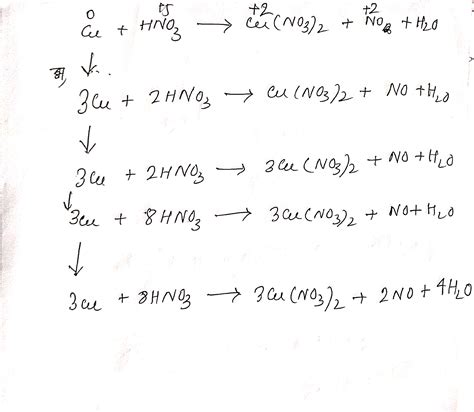 0 +5 +2 +2
Cu + HNO3 → Cu(NO3)2 + NO + H2O
3Cu + 2HNO3 → Cu(NO3)2 + NO + H2O
3Cu + 2HNO3 → 3Cu(NO3)2 + NO + H2O
3Cu + 8HNO3 → 3Cu(NO3)2 + NO + H2O
3Cu + 8HNO3 → 3Cu(NO3)2 + 2NO + 4H2O